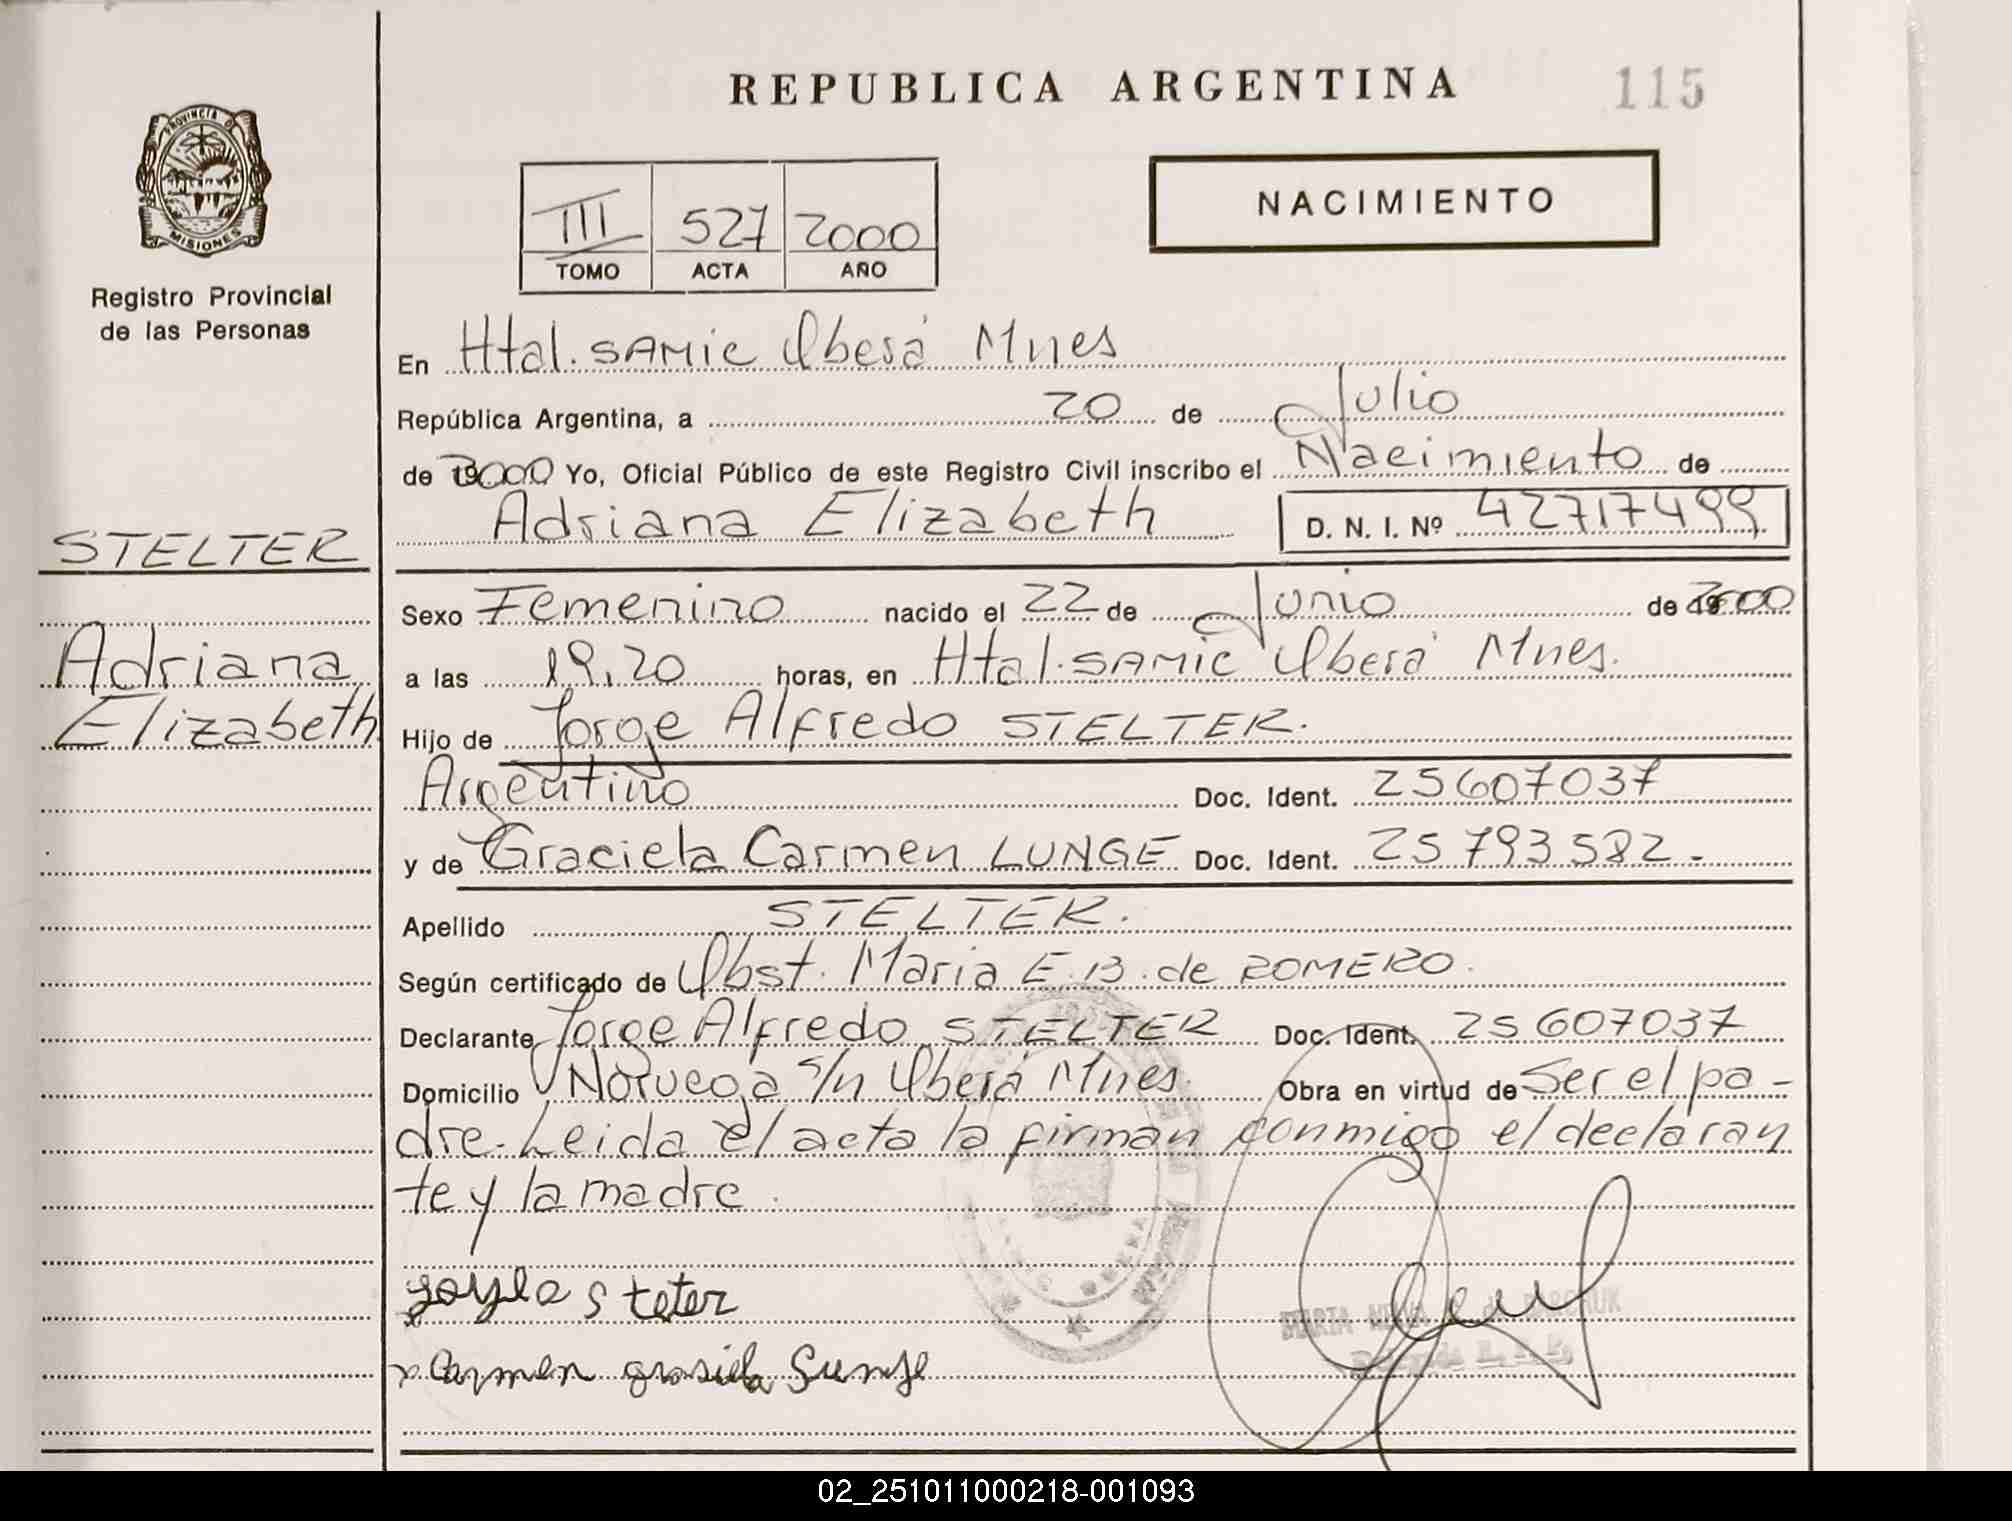 REPUBLICA ARGENTINA
115
PROVINCIA DE
MISIONES
Registro Provincial
de las Personas
NACIMIENTO
III 527 2000
TOMO ACTA AÑO
En Htal. SAMIC Oberá Mnes
República Argentina, a 20 de Julio
de 2000 Yo, Oficial Público de este Registro Civil inscribo el Nacimiento de
Adriana Elizabeth D. N. I. Nº 42717499
STELTER
Adriana
Elizabeth
Sexo Femenino nacido el 22 de Junio de 2000
a las 19,20 horas, en Htal. SAMIC Oberá Mnes.
Hijo de Jorge Alfredo STELTER.
Argentino Doc. Ident. 25607037
y de Graciela Carmen LUNGE Doc. Ident. 25793582.-
Apellido STELTER.
Según certificado de Obst. Maria E. B. de ROMERO.
Declarante Jorge Alfredo STELTER Doc. Ident. 25607037
Domicilio Noruega s/n Oberá Mnes. Obra en virtud de Ser el pa-
dre- Leida el acta la firman conmigo el declaran
te y la madre.
Steter
Carmen
02_251011000218-001093